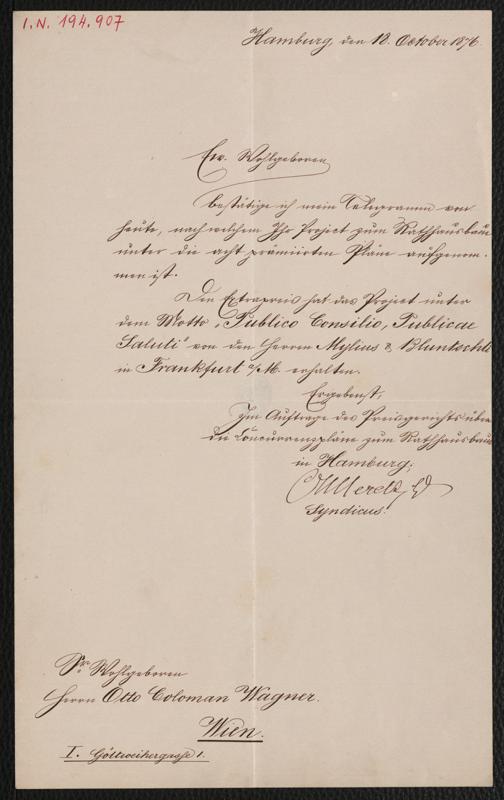 I.N. 194.907
Hamburg, den 18. October 1876.
Ew. Wohlgeboren
bestätige ich mein Telegramm von
heute, nach welchem Ihr Project zum Rathhausbau
unter die acht prämiirten Pläne aufgenom-
men ist.
Den Extrapreis hat das Project unter
dem Motto „Publico Consilio, Publicae
Saluti" von den Herren Mylius & Bluntschli
in Frankfurt a/M. erhalten.
Ergebenst,
Im Auftrage des Preisgerichts über
die Concurrenzpläne zum Rathhausbau
in Hamburg;
Merck
Syndicus.
Sr. Wohlgeboren
Herrn Otto Coloman Wagner.
Wien.
I. Göttweihergasse 1.